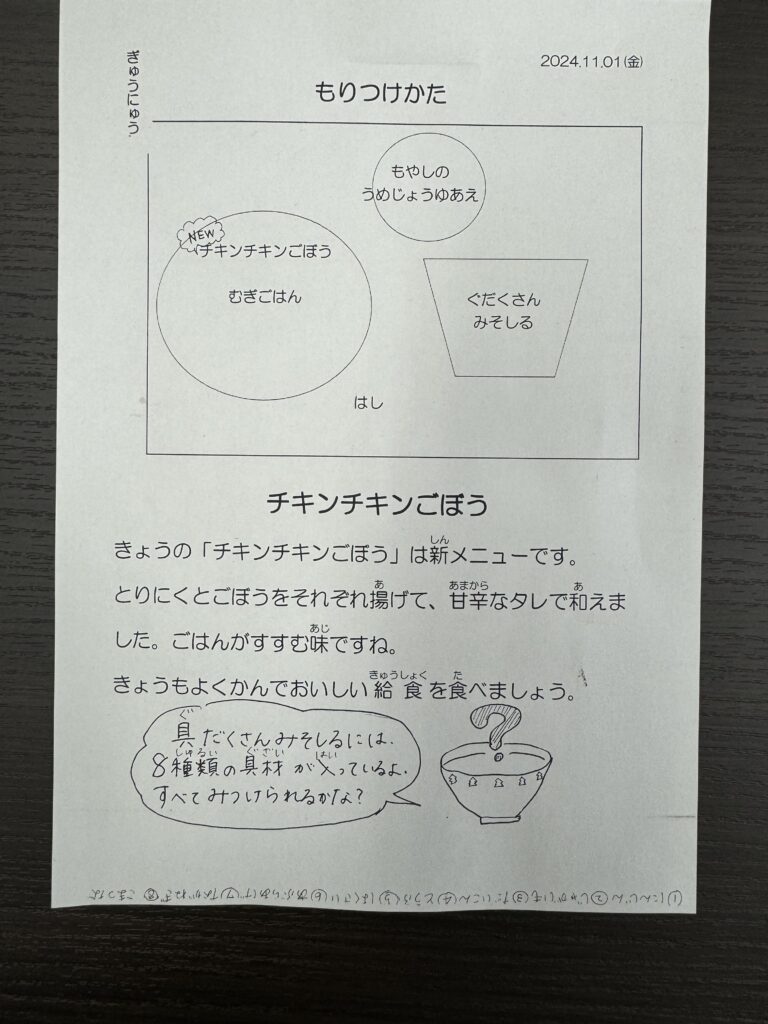 ぎゅうにゅう
2024.11.01(金)
もりつけかた
もやしの
うめじょうゆあえ
NEW
チキンチキンごぼう
むぎごはん
ぐだくさん
みそしる
はし
チキンチキンごぼう
きょうの「チキンチキンごぼう」は新メニューです。
とりにくとごぼうをそれぞれ揚げて、甘辛なタレで和えま
した。ごはんがすすむ味ですね。
きょうもよくかんでおいしい給食を食べましょう。
具だくさんみそしるには、
8種類の具材が入っているよ。
すべてみつけられるかな?
?
①にんじん②じゃがいも③だいこん④とうふ⑤はくさい⑥あぶらあげ⑦ながねぎ⑧こまつな